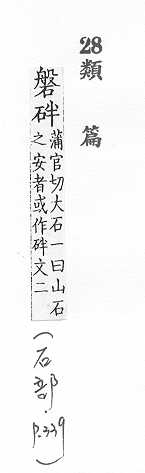 28類篇
磐砰蒲官切大石一曰山石
之安者或作砰文二
(石部.p.339)